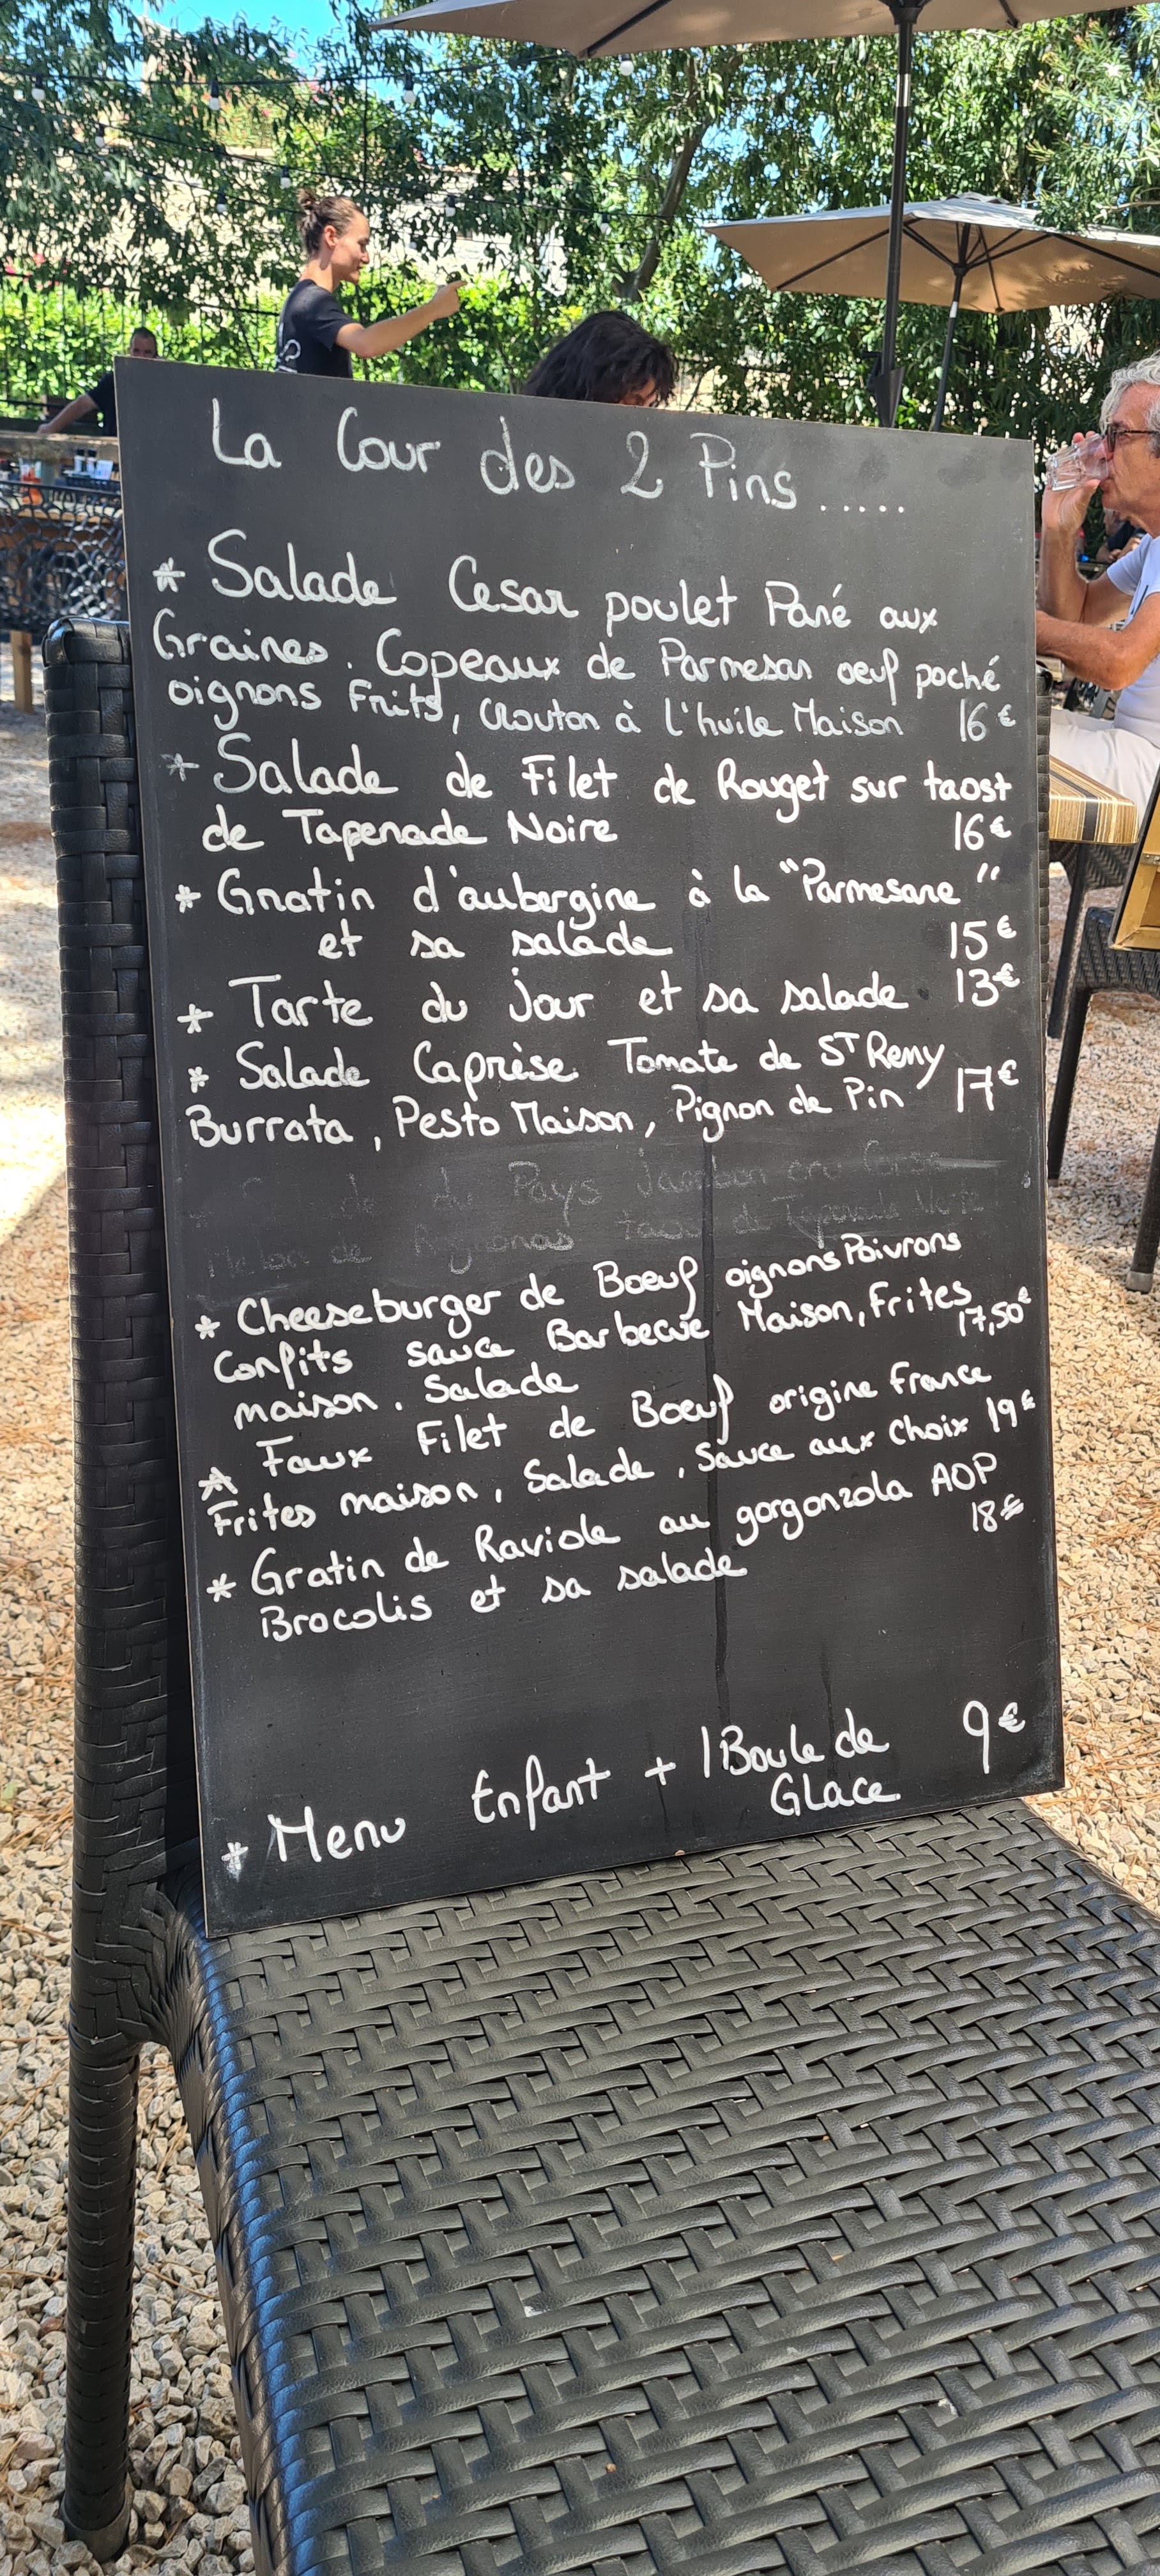 La Cour des 2 Pins .....
* Salade Cesar poulet Pané aux
Graines. Copeaux de Parmesan oeuf poché
oignons Frits, Crouton à l'huile Maison 16€
* Salade de Filet de Rouget sur taost
de Tapenade Noire 16€
* Gratin d'aubergine à la "Parmesane"
et sa salade 15€
* Tarte du jour et sa salade 13€
* Salade Caprèse Tomate de ST Remy
Burrata, Pesto Maison, Pignon de Pin 17€
du Pays Jambon cru Corse
Melon de
* Cheeseburger de Boeuf oignons Poivrons
Confits sauce Barbecue Maison, Frites
maison. Salade 17,50€
* Faux Filet de Boeuf origine France
Frites maison, Salade, Sauce aux choix 19€
* Gratin de Raviole au gorgonzola AOP
Brocolis et sa salade 18€
* Menu Enfant + 1 Boule de 9€
Glace